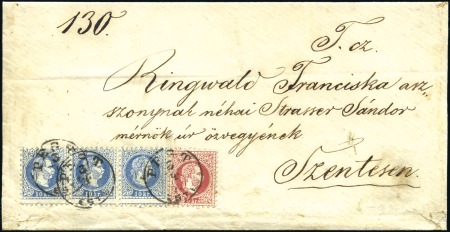 130.
T. cz.
Ringwald Franciska asz=
szonynak néhai Strasser Sándor
mérnök úr özvegyének
Szentesen
PEST